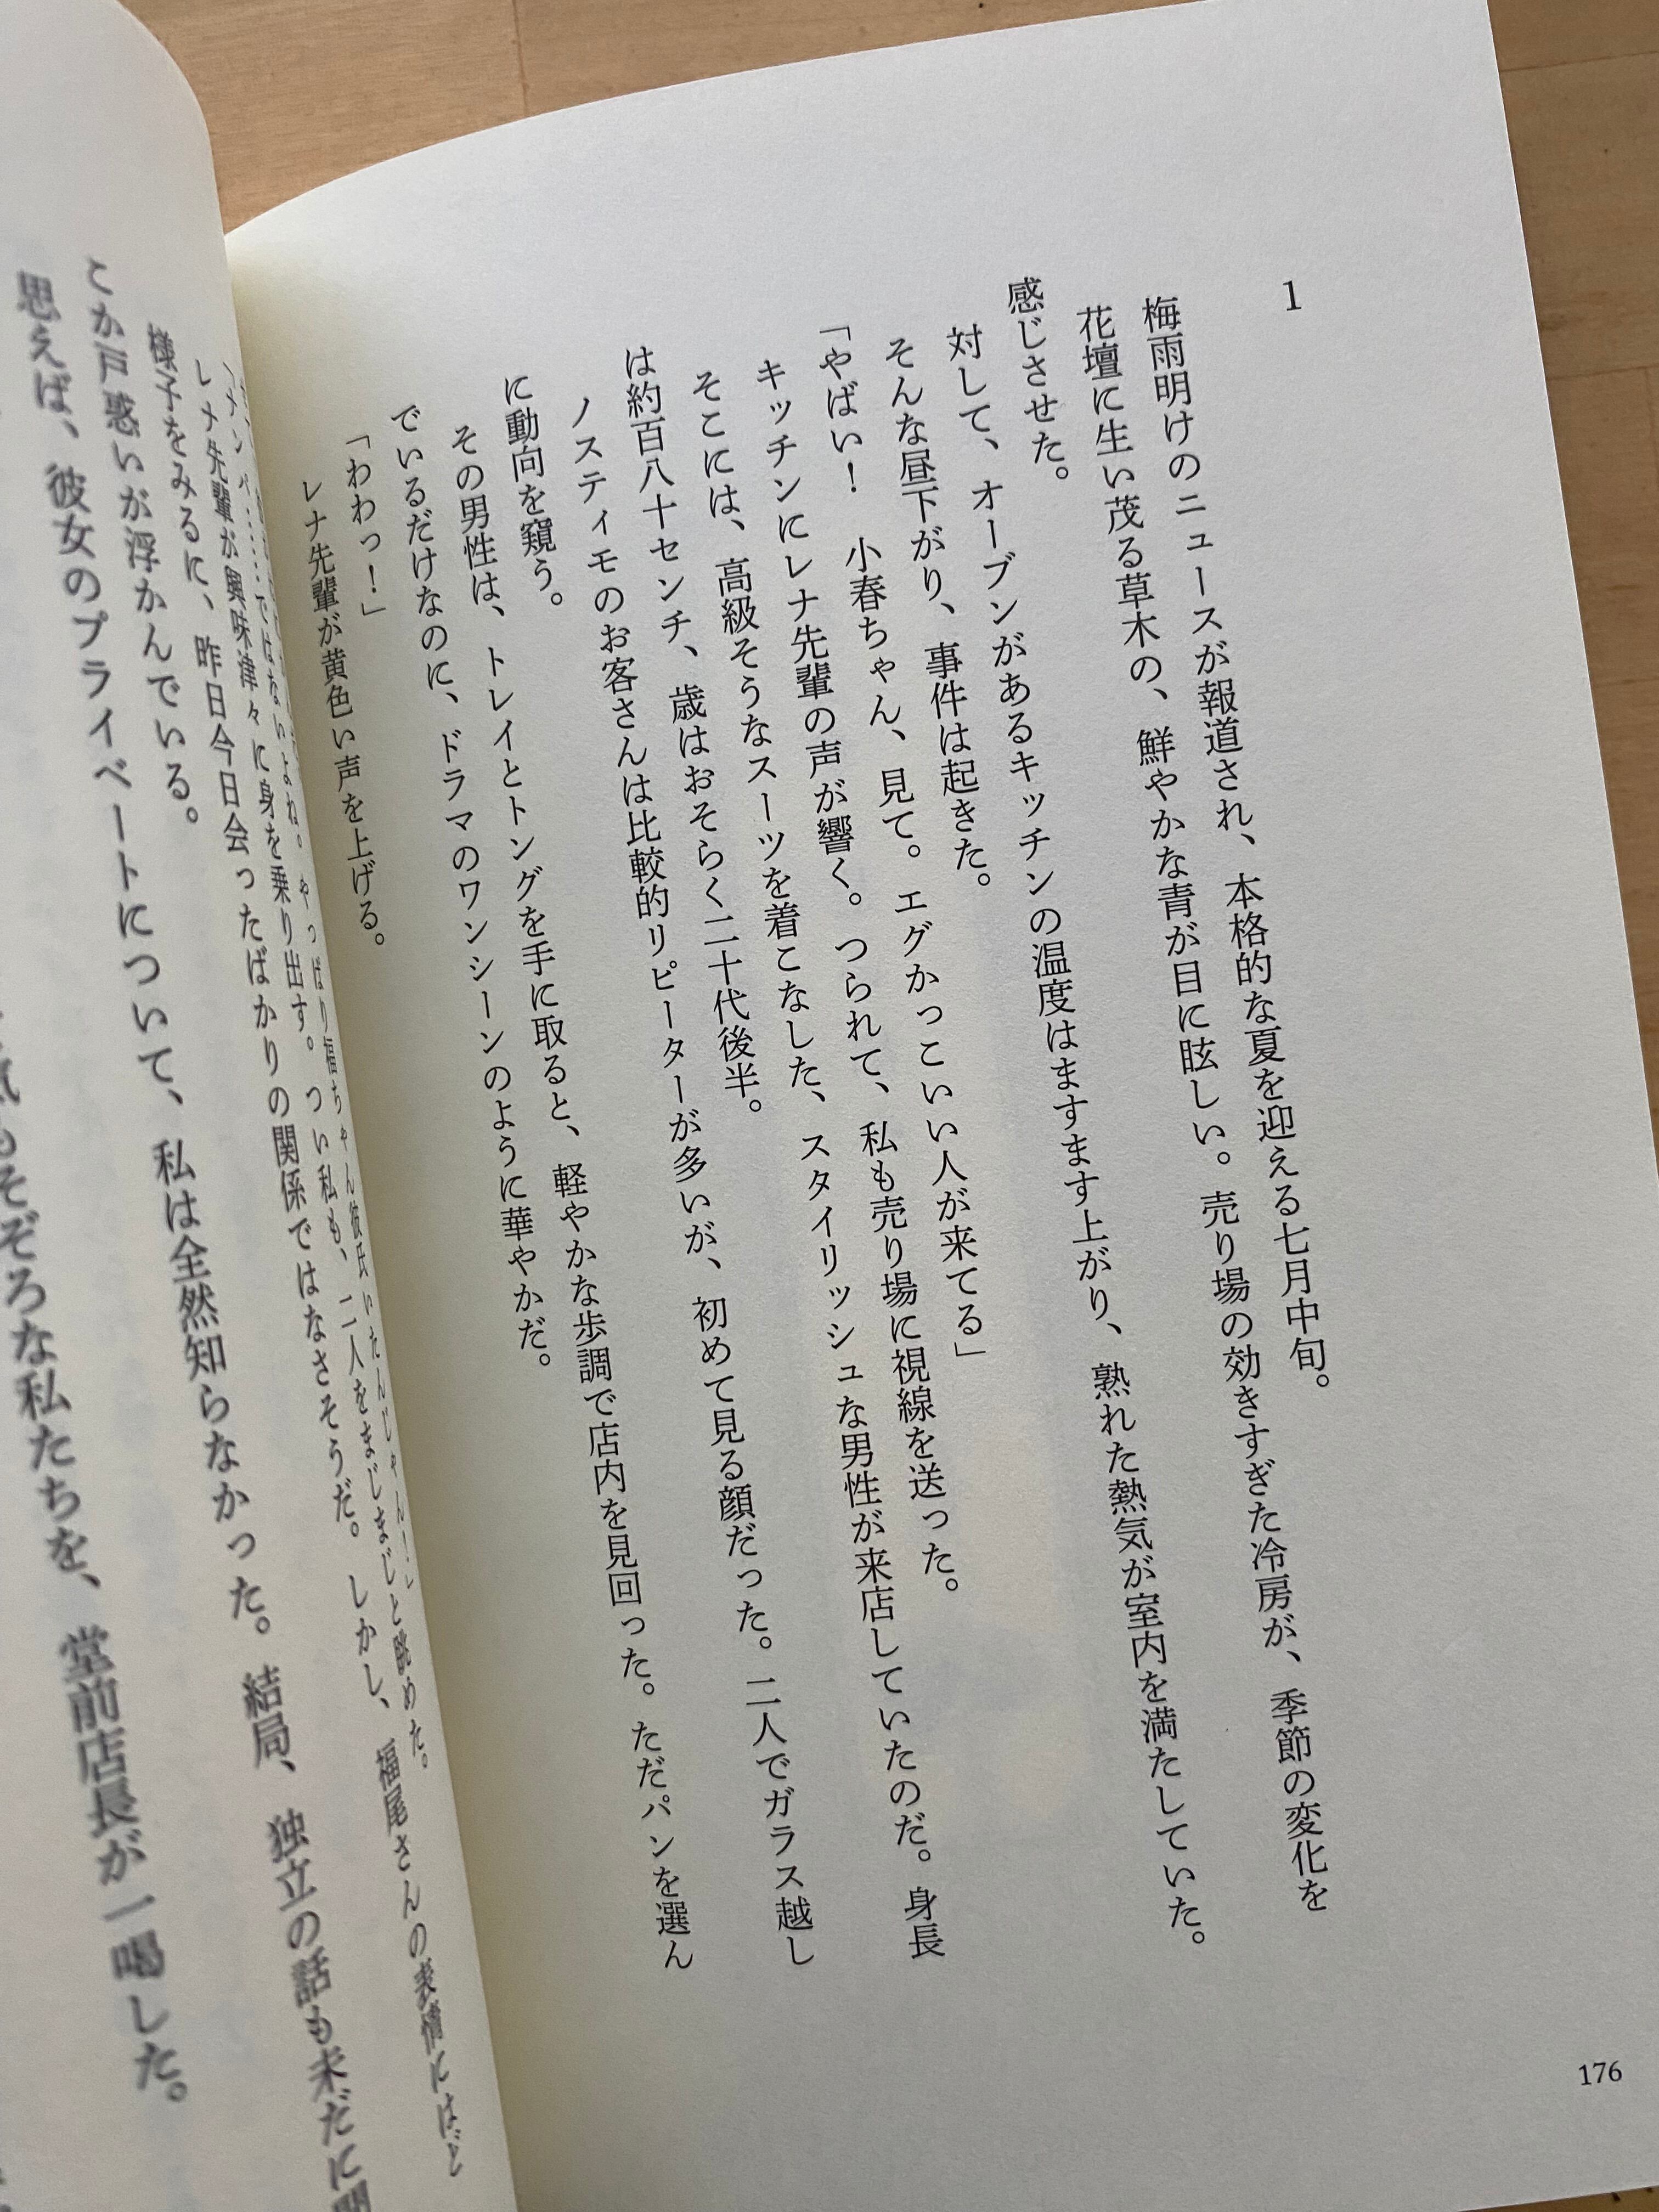 1
梅雨明けのニュースが報道され、本格的な夏を迎える七月中旬。
花壇に生い茂る草木の、鮮やかな青が目に眩しい。売り場の効きすぎた冷房が、季節の変化を
感じさせた。
対して、オーブンがあるキッチンの温度はますます上がり、熟れた熱気が室内を満たしていた。
そんな昼下がり、事件は起きた。
「やばい！　小春ちゃん、見て。エグかっこいい人が来てる」
キッチンにレナ先輩の声が響く。つられて、私も売り場に視線を送った。
そこには、高級そうなスーツを着こなした、スタイリッシュな男性が来店していたのだ。身長
は約百八十センチ、歳はおそらく二十代後半。
ノスティモのお客さんは比較的リピーターが多いが、初めて見る顔だった。二人でガラス越し
に動向を窺う。
その男性は、トレイとトングを手に取ると、軽やかな歩調で店内を見回った。ただパンを選ん
でいるだけなのに、ドラマのワンシーンのように華やかだ。
「わわっ！」
レナ先輩が黄色い声を上げる。
176
ではないよね。やっぱり福ちゃん彼氏いたんじゃん！」
レナ先輩が興味津々に身を乗り出す。つい私も、二人をまじまじと眺めた。
様子をみるに、昨日今日会ったばかりの関係ではなさそうだ。しかし、福尾さんの表情にはど
こか戸惑いが浮かんでいる。
思えば、彼女のプライベートについて、私は全然知らなかった。結局、独立の話も未だに
もそぞろな私たちを、堂前店長が一喝した。